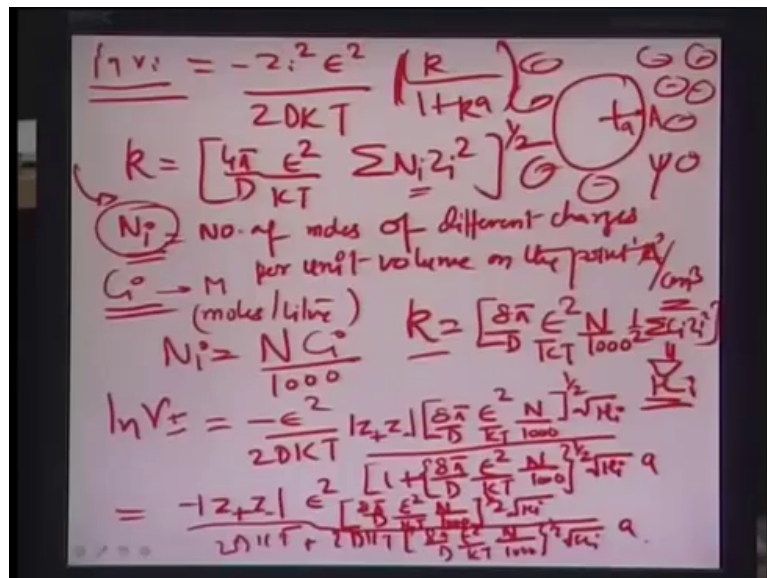 ln γi = -Zi² ε² / 2DKT (k / 1+ka)
k = [4π/D ε²/KT Σ Ni Zi²]^1/2
a A
ψ
Ni = No. of moles of different charges
per unit volume on the point A /cm³
Ci → M
(moles/litre)
Ni = N Ci / 1000
k = [8π/D ε²/KT N/1000 1/2 Σ Ci Zi²]^1/2
ln γ± = -ε² / 2DKT |Z+ Z-| [8π/D ε²/KT N/1000]^1/2 √μi / [1+[8π/D ε²/KT N/1000]^1/2 √μi a
= -|Z+ Z-| ε² [8π/D ε²/KT N/1000]^1/2 √μi / 2DKT + 2DKT [8π/D ε²/KT N/1000]^1/2 √μi a